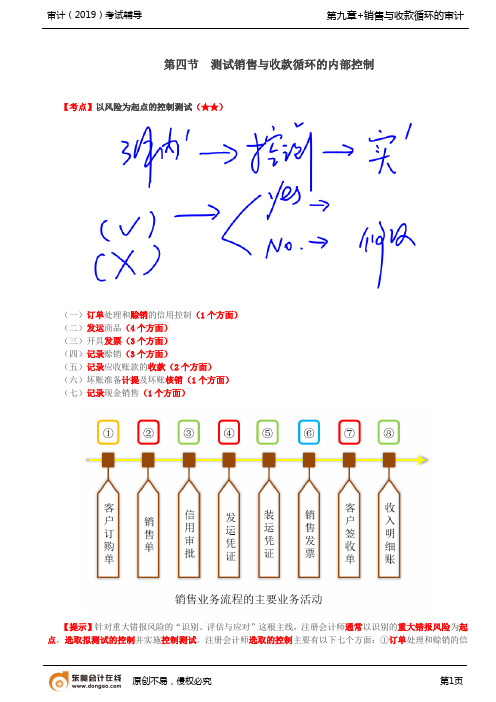 审计（2019）考试辅导
第九章+销售与收款循环的审计
第四节 测试销售与收款循环的内部控制
【考点】以风险为起点的控制测试（★★）
控测
实'
(√)
(X)
Yes
No.
（一）订单处理和赊销的信用控制（1个方面）
（二）发运商品（4个方面）
（三）开具发票（3个方面）
（四）记录赊销（3个方面）
（五）记录应收账款的收款（2个方面）
（六）坏账准备计提及坏账核销（1个方面）
（七）记录现金销售（1个方面）
① ② ③ ④ ⑤ ⑥ ⑦ ⑧
客户订购单
销售单
信用审批
发运凭证
装运凭证
销售发票
客户签收单
收入明细账
销售业务流程的主要业务活动
【提示】针对重大错报风险的“识别、评估与应对”这根主线，注册会计师通常以识别的重大错报风险为起
点，选取拟测试的控制并实施控制测试。注册会计师选取的控制主要有以下七个方面：①订单处理和赊销的信
东奥会计在线
www.dongao.com
原创不易，侵权必究
第1页